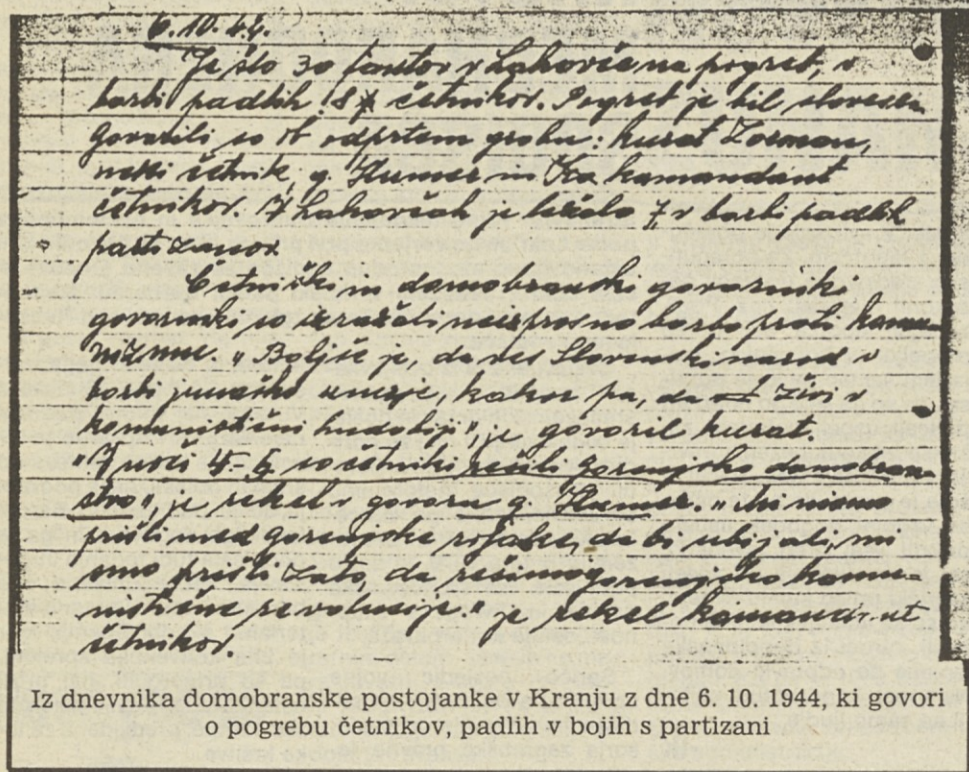 6.10.44.
Je šlo 30 fantov v Lahovče na pogreb, v
borbi padlih 8 četnikov. Pogreb je bil slovesen
Govorili so ob odprtem grobu: kurat Zorman,
neki četnik, g. Humer in komandant
četnikov. V Lahovčah je ležalo 7 v borbi padlih
partizanov.
Četniški in domobranski govorniki
govorniki so izražali neizprosno borbo proti komu-
nizmu. "Boljše je, da ves Slovenski narod v
borbi junaško umrje, kakor pa, da živi v
komunistični hudobiji", je govoril kurat.
"V noči 4-5 so četniki rešili gorenjsko domobran-
stvo", je rekel v govoru g. Humer. "Mi nismo
prišli med gorenjske rojake, da bi ubijali, mi
smo prišli zato, da rešimo gorenjsko komu-
nistične revolucije." je rekel komandant
četnikov.
Iz dnevnika domobranske postojanke v Kranju z dne 6. 10. 1944, ki govori
o pogrebu četnikov, padlih v bojih s partizani